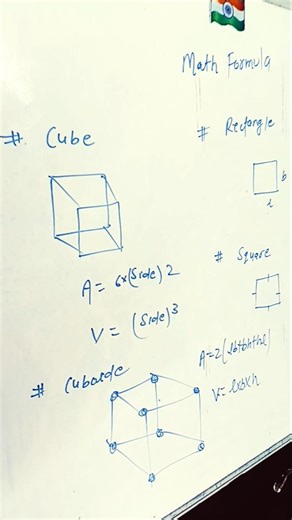 Math Formula
# Cube
# Rectangle
b
l
A = 6x(Side)2
V = (Side)3
# Square
# Cuboide
A=2(lb+bh+hl)
V=lxbxh